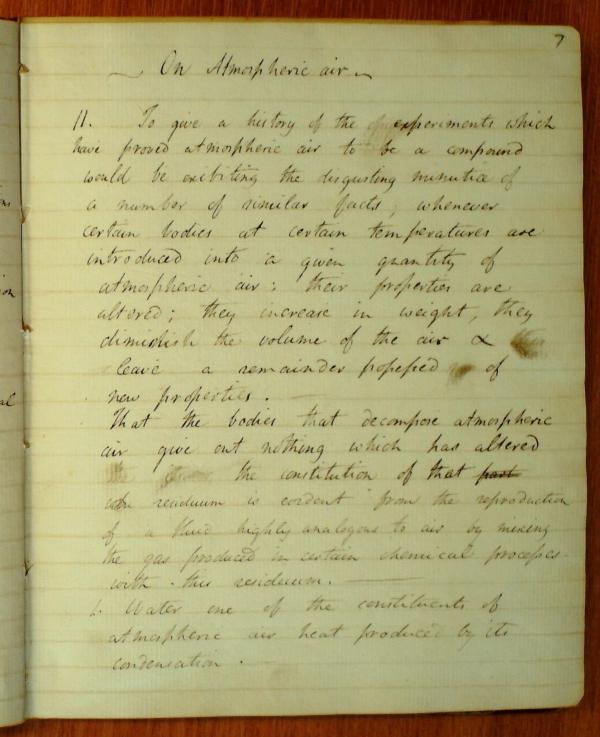 7
On Atmospheric air
11. To give a history of the experiments which
have proved atmospheric air to be a compound
would be exibiting the disgusting minutiæ of
a number of similar facts; whenever
certain bodies at certain temperatures are
introduced into a given quantity of
atmospheric air: their properties are
altered; they increase in weight, they
diminish the volume of the air &
leave a remainder possessed of
new properties. —
That the bodies that decompose atmospheric
air give out nothing which has altered
the constitution of that part
residuum is evident from the reproduction
of a fluid highly analogous to air by mixing
the gas produced in certain chemical processes
with this residuum. —
1. Water one of the constituents of
atmospheric air heat produced by its
condensation. —
on
al